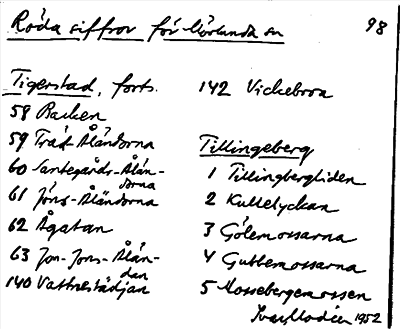 Röda siffror för Mörlanda sn
98
Tigerstad, forts.
58 Backen
59 Träd-Åländorna
60 Santegårds-Ålän-
dorna
61 Jöns-Åländorna
62 Ågatan
63 Jon-Jons-Ålän-
dan
140
142 Vickebroa
Tillingeberg
1 Tillingbergliden
2 Kullelyckan
3 Gölemossarna
4 Gubbemossarna
5 Mossebergemossen
1952